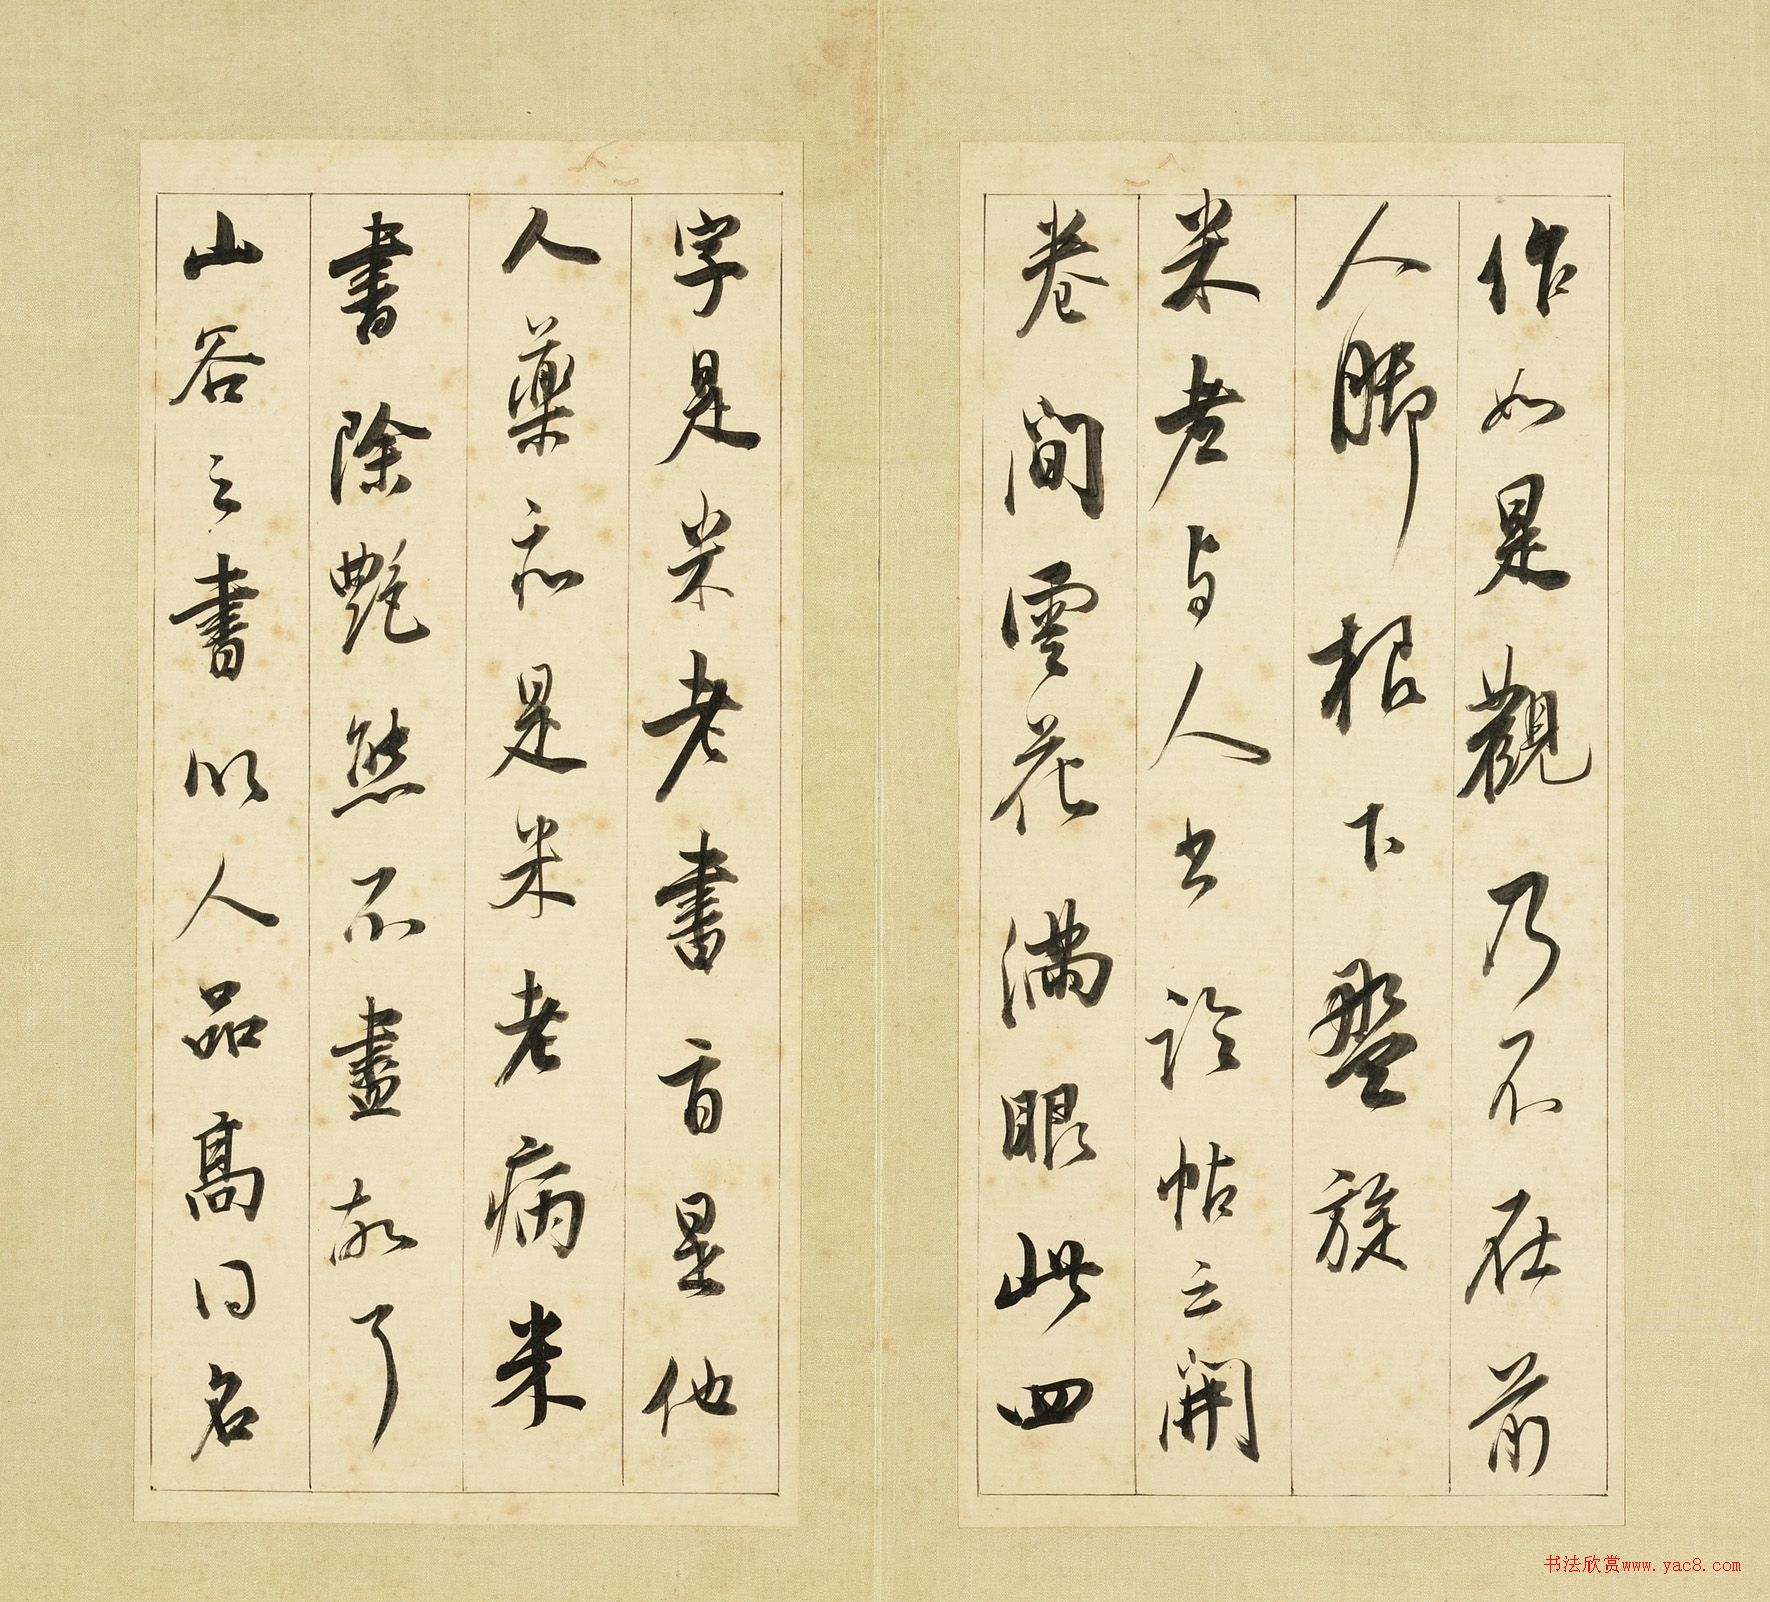 作如是觀乃不在前
人腳根下盤旋
米老与人书論帖云開
卷間雲花滿眼此四
字是米老書旨是他
人藥忌是米老病米
書除艷態不盡故了
山谷之書以人品高得名
书法欣赏www.yac8.com